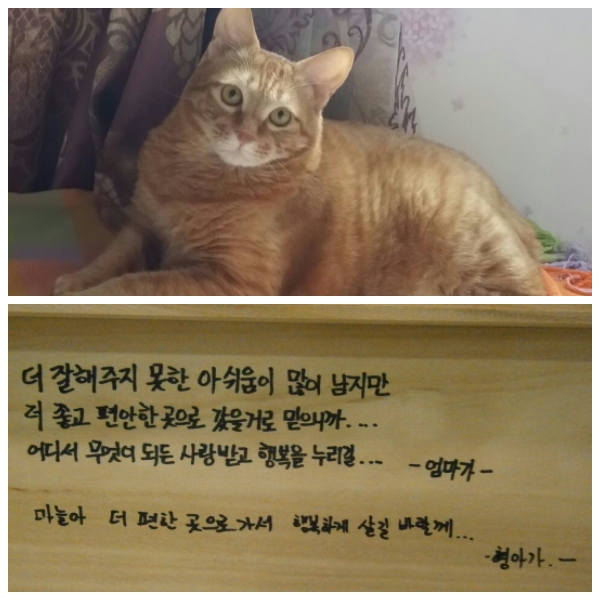 더 잘해주지 못한 아쉬움이 많이 남지만
더 좋고 편안한곳으로 갔을거로 믿으니까....
어디서 무엇이 되든 사랑받고 행복을 누리길...
-엄마가-
마늘아 더 편한 곳으로가서 행복하게 살길 바랄께...
-형아가.-